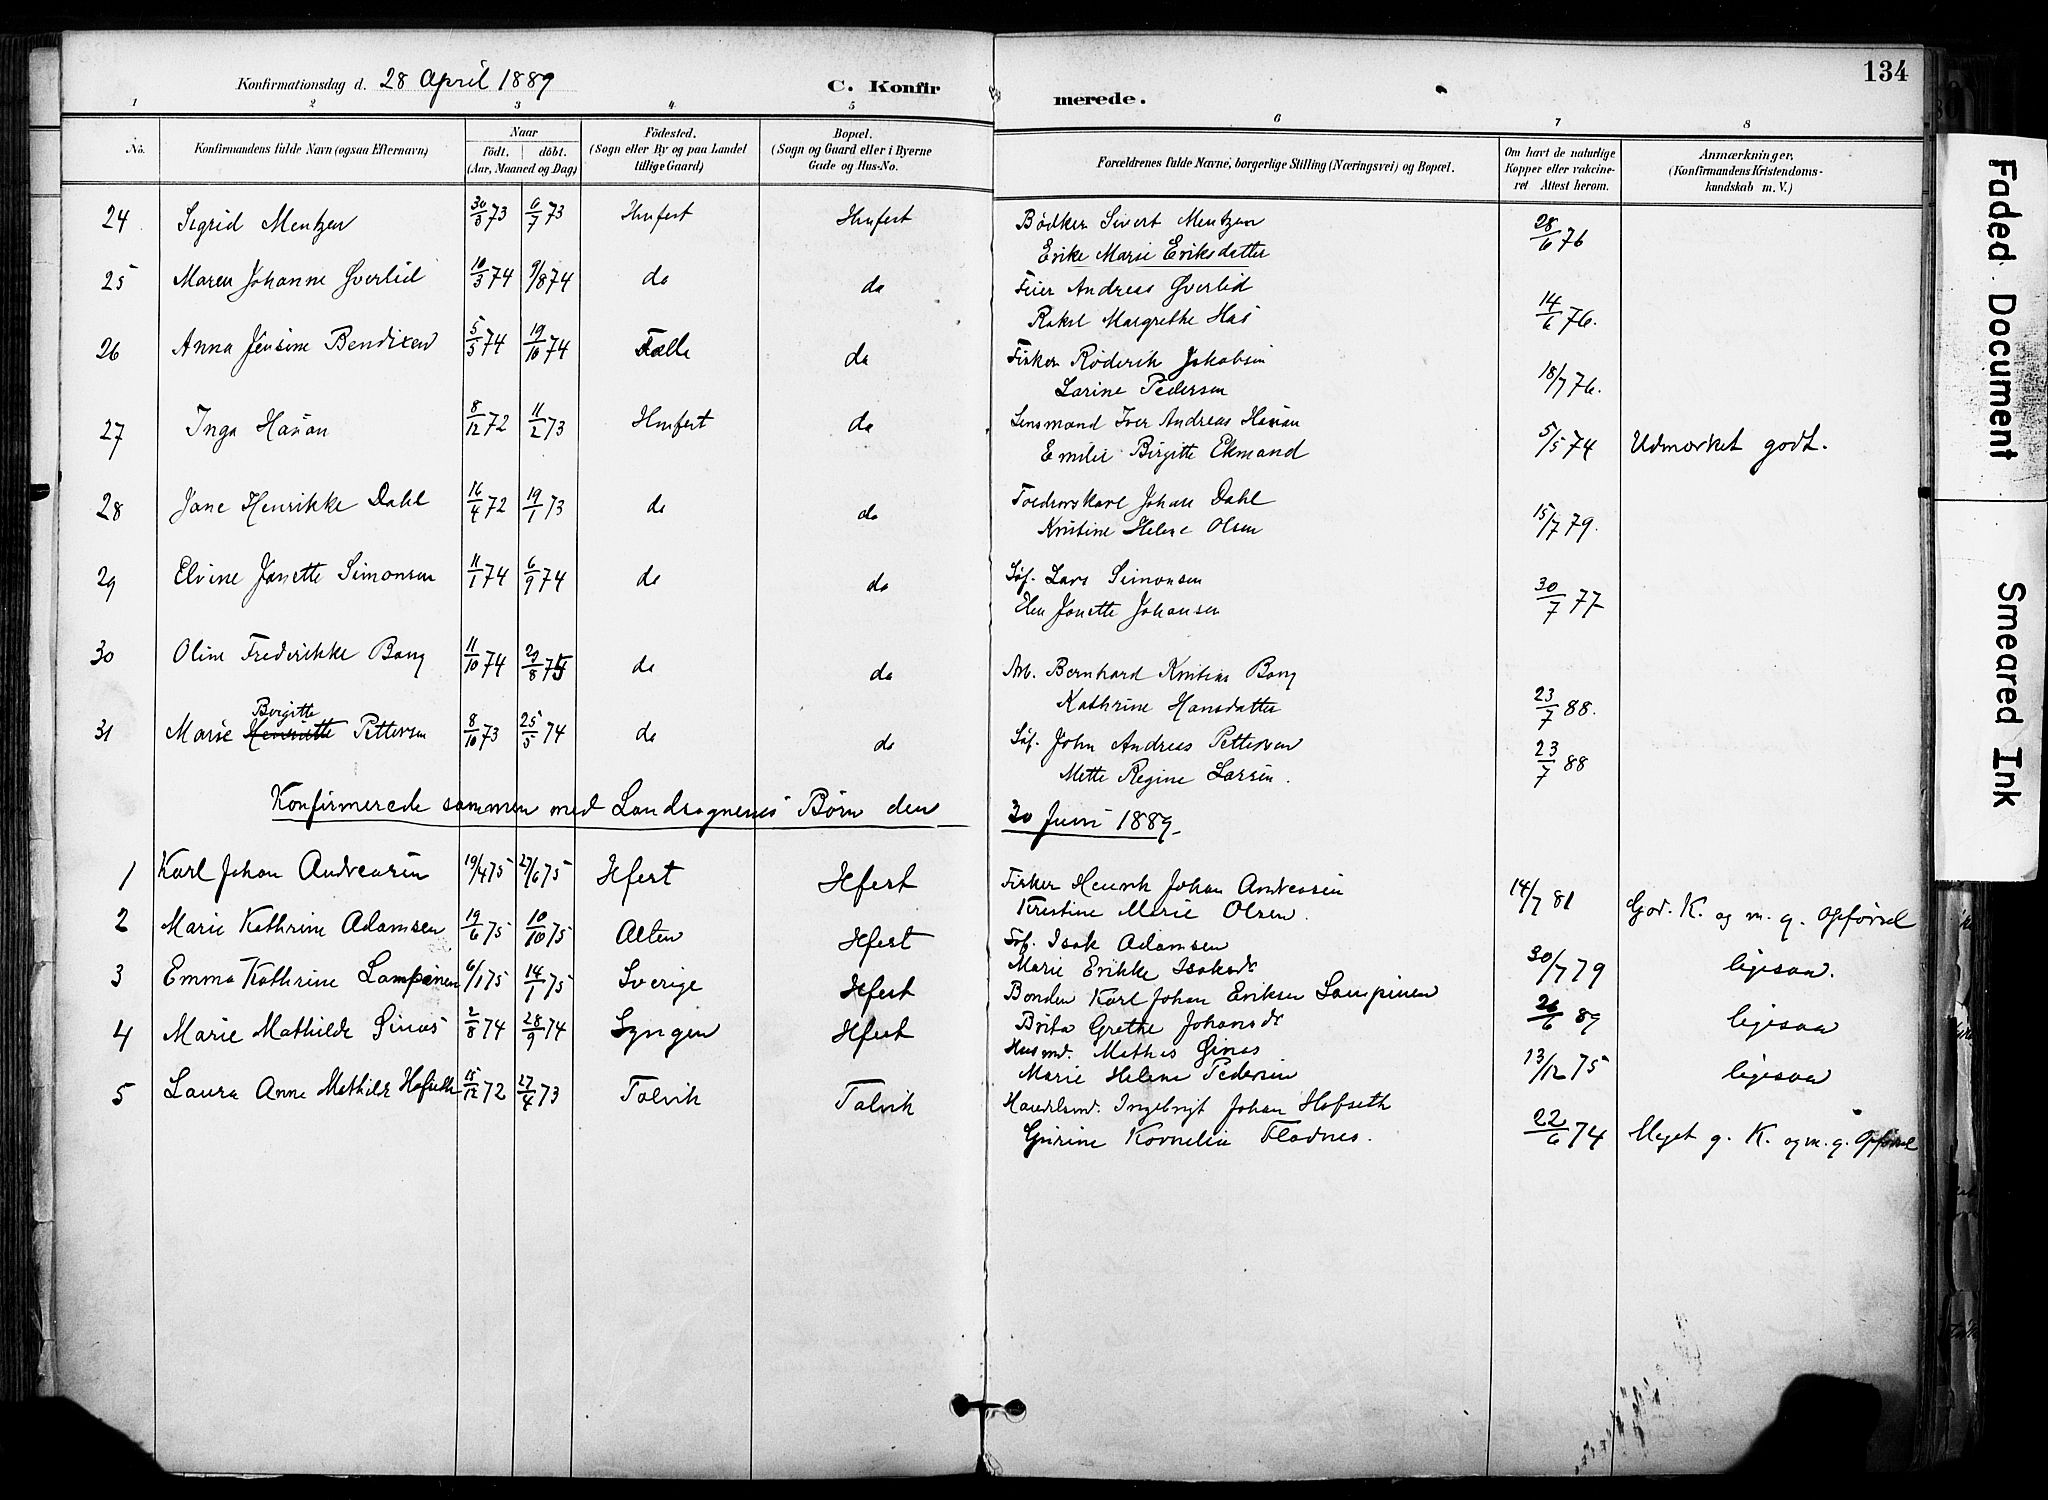 134
Konfirmationsdag d. 28 April 1889
C. Konfirmerede.
1 2 3 4 5 6 7 8
No.
Konfirmandens fulde Navn (ogsaa Efternavn)
Naar
födt. döbt.
(Aar, Maaned og Dag)
Födested.
(Sogn eller By og paa Landet tillige Gaard)
Bopæl.
(Sogn og Gaard eller i Byerne Gade og Hus-No.
Forældrenes fulde Navne, borgerlige Stilling (Næringsvei) og Bopæl.
Om havt de naturlige Kopper eller vakcineret Attest herom.
Anmærkninger.
(Konfirmandens Kristendomskundskab m. V.)
24 Sigrid Mentzen 30/3 73 6/7 73 Hmfest Hmfest Bødker Sivert Mentzen 28/6 76
Erike Marie Eriksdatter
25 Maren Johanne Gverlid 10/3 74 9/8 74 do do Feier Andreas Gverlid 14/6 76.
Rakel Margrethe
26 Anna Jensine Bendixen 5/5 74 19/10 74 do Fisker Røderik Jakobsen 18/7 76.
Larine Pedersen
27 Inga Havan 8/12 72 11/2 73 Hmfest do Lensmand Iver Andreas Havan 5/5 74 Udmærket godt.
Emilie Birgitte Ekmand
28 Jane Henrikke Dahl 16/4 72 19/1 73 do do Johan Dahl 15/7 79.
Kristine Helene Olsen
29 Elvine Janette Simonsen 11/1 74 6/9 74 do do Søf. Lars Simonsen 30/7 77
Elen Janette Johansen
30 Oline Frederikke Bang 11/10 74 29/8 75 do do Arb. Bernhard Kristian Bang 23/7 88.
Kathrine Hansdatter
31 Marie Birgitte Henriette Pettersen 8/10 73 25/5 74 do do Søf. John Andreas Pettersen 23/7 88
Mette Regine Larsen.
Konfirmerede sammen med Landsognenes Børn den 30 Juni 1889.
1 Karl Johan Andreasen 19/4 75 27/6 75 Hfest Hfest Fisker Henrik Johan Andreasen 14/7 81 God. K. og m. g. Opførsel
Kristine Marie Olsen.
2 Marie Kathrine Adamsen 19/6 75 10/10 75 Alten Hfest Søf. Isak Adamsen 30/7 79 ligesaa.
Marie Erikke Isaksdr
3 Emma Kathrine Lampinen 6/1 75 14/1 75 Sverige Hfest Bonden Karl Johan Eriksen Lampinen 26/6 89 ligesaa
Brita Grethe Johansdr
4 Marie Mathilde Ginos 2/8 74 28/9 74 Lyngen Hfest Husmd. Mathis Ginos 13/12 75 ligesaa
Marie Helene Pedersen
5 Laura Anne Mathilde Hofseth 15/12 72 27/4 73 Talvik Talvik Handelsmd. Ingebrigt Johan Hofseth 22/6 74 Meget g. K. og m. g. Opførsel
Gurine Kornelia Fladnes.
Faded Document
Smeared Ink